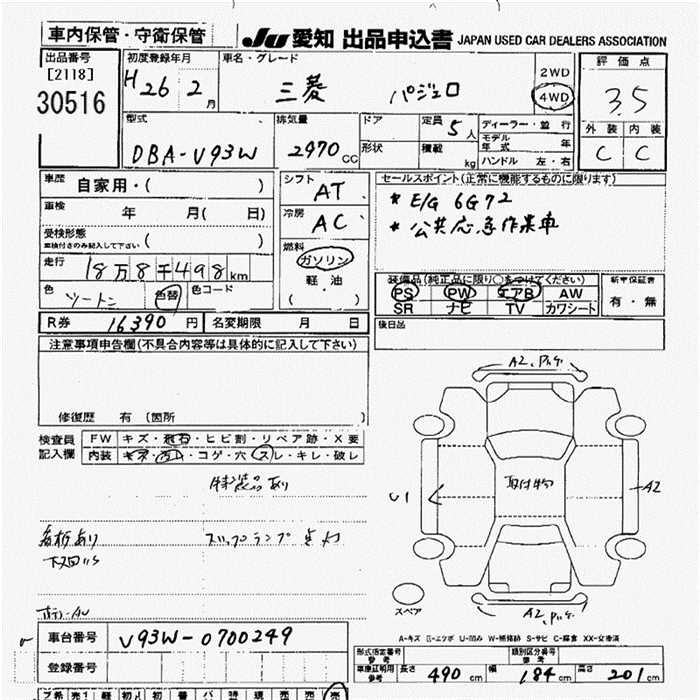 車内保管・守衛保管
JU 愛知 出品申込書 JAPAN USED CAR DEALERS ASSOCIATION
出品番号
[2118]
30516
初度登録年月
H26 2 月
車名・グレード
三菱 パジェロ
2WD
4WD
評価点
3.5
外装 内装
C C
型式
DBA-V93W
排気量
2970 CC
ドア
形状
定員 5 人
積載 kg
ディーラー・並行
モデル年式 年
ハンドル 左・右
車歴
自家用・( )
車検 年 月( 日)
受検形態
車検付きのみ記入して下さい ( )
走行
18万8千498 km
色 ツートン 色替 色コード
シフト
AT
冷房
AC
燃料
ガソリン
軽油
( ・ )
セールスポイント(正常に機能するものに限ります)
* E/G 6G72
* 公共応急作業車
装備品(純正品に限り○をつけてください)
PS PW エアB AW
SR ナビ TV カワシート
新車保証書
有・無
後日品
R券 16390 円 名変期限 月 日
注意事項申告欄(不具合内容等は具体的に記入して下さい)
修復歴 有 (箇所
検査員
記入欄
FW キズ・飛石・ヒビ割・リペア跡・X要
内装 キズ・汚レ・コゲ・穴・スレ・キレ・破レ
特装品あり
看板あり
A2
取付物
U1
A2
スペア
A2
車台番号 V93W-0700249
登録番号
型式指定番号
参考
類別区分番号
参考
車庫証明用
参考
長さ 490 cm 幅 184 cm 高さ 201 cm